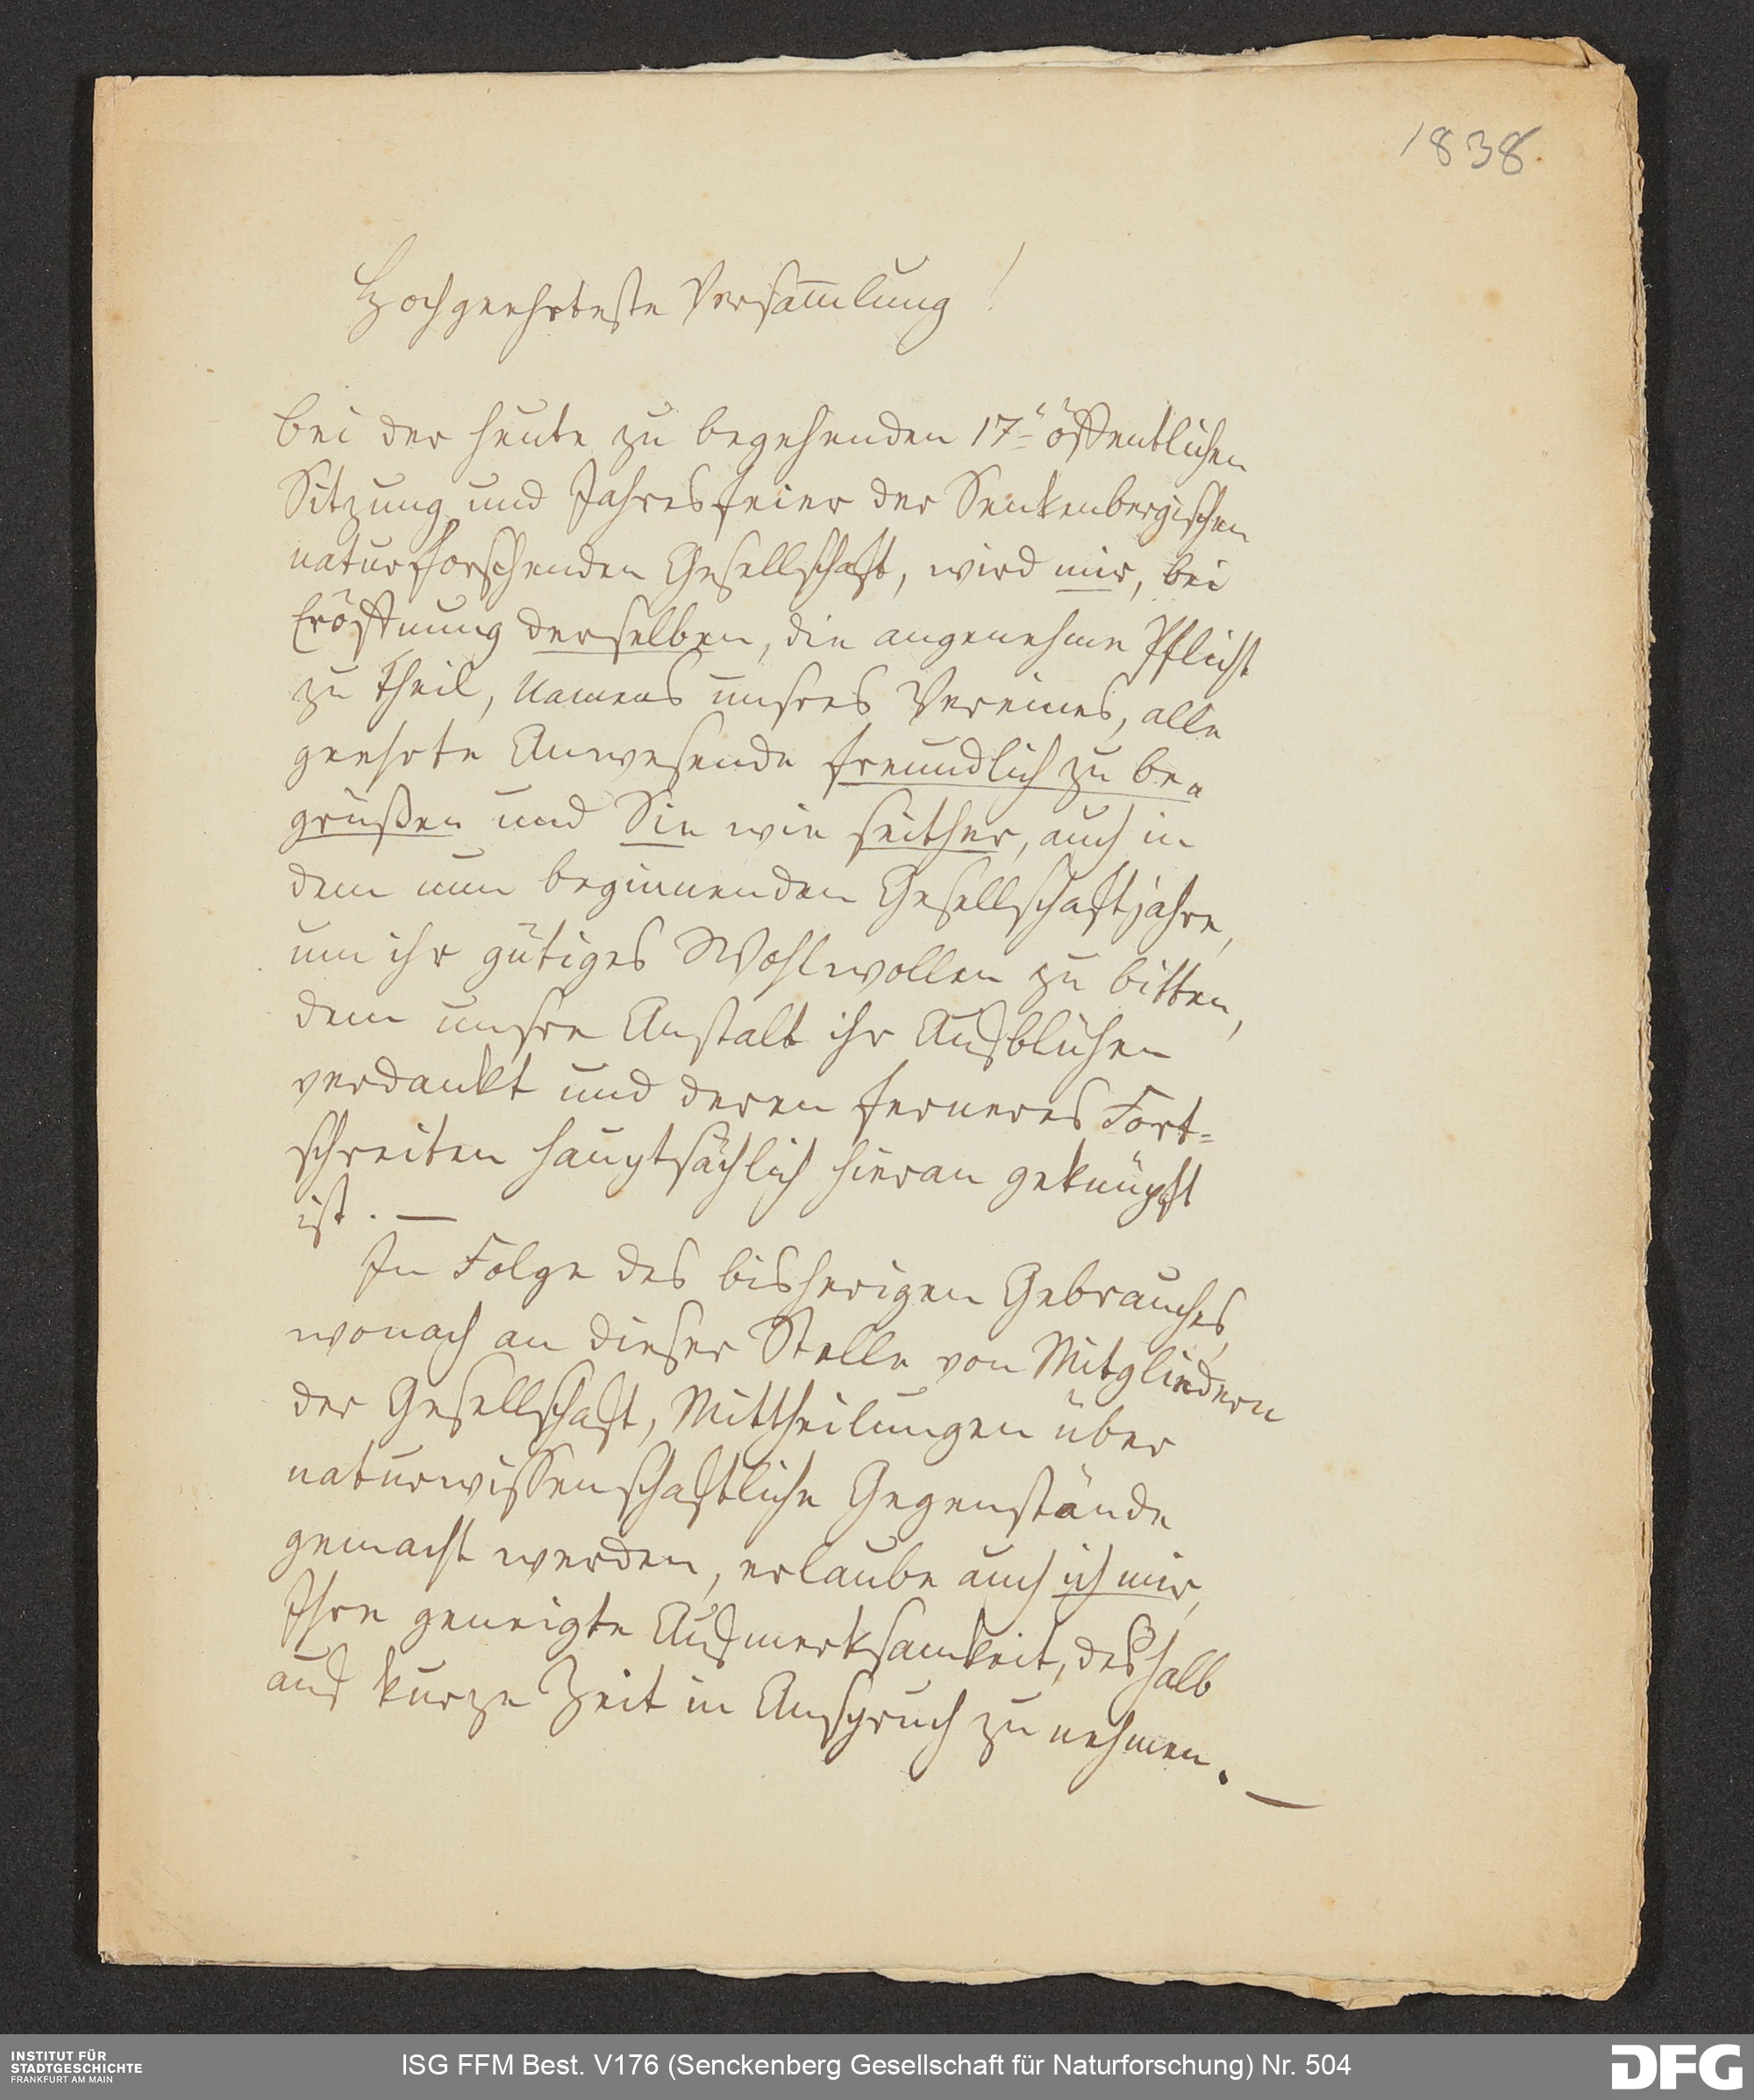 1838.
Hochgeehrteste Versam̄lung!
bei der heute zu begehenden 17n öffentlichen
Sitzung und Jahresfeier der Senkenbergischen
naturforschenden Gesellschaft, wird mir, bei
Eröffnung derselben, die angenehme Pflicht
zu Theil, Namens unsres Vereines, alle
geehrte Anwesende freundlich zu be=
grüßen und Sie wie seither, auch in
dem nun beginnenden Gesellschaftjahre,
um ihr gütiges Wohlwollen zu bitten,
dem unsre Anstalt ihr Aufblühen
verdankt und deren ferneres Fort=
schreiten hauptsächlich hieran geknüpft
ist. —
In Folge des bisherigen Gebrauches,
wonach an dieser Stelle von Mitgliedern
der Gesellschaft, Mittheilungen über
naturwissenschaftliche Gegenstände
gemacht werden, erlaube auch ich mir,
Ihre geneigte Aufmerksamkeit, deshalb
auf kurze Zeit in Anspruch zu nehmen. —
INSTITUT FÜR
STADTGESCHICHTE
FRANKFURT AM MAIN
ISG FFM Best. V176 (Senckenberg Gesellschaft für Naturforschung) Nr. 504
DFG